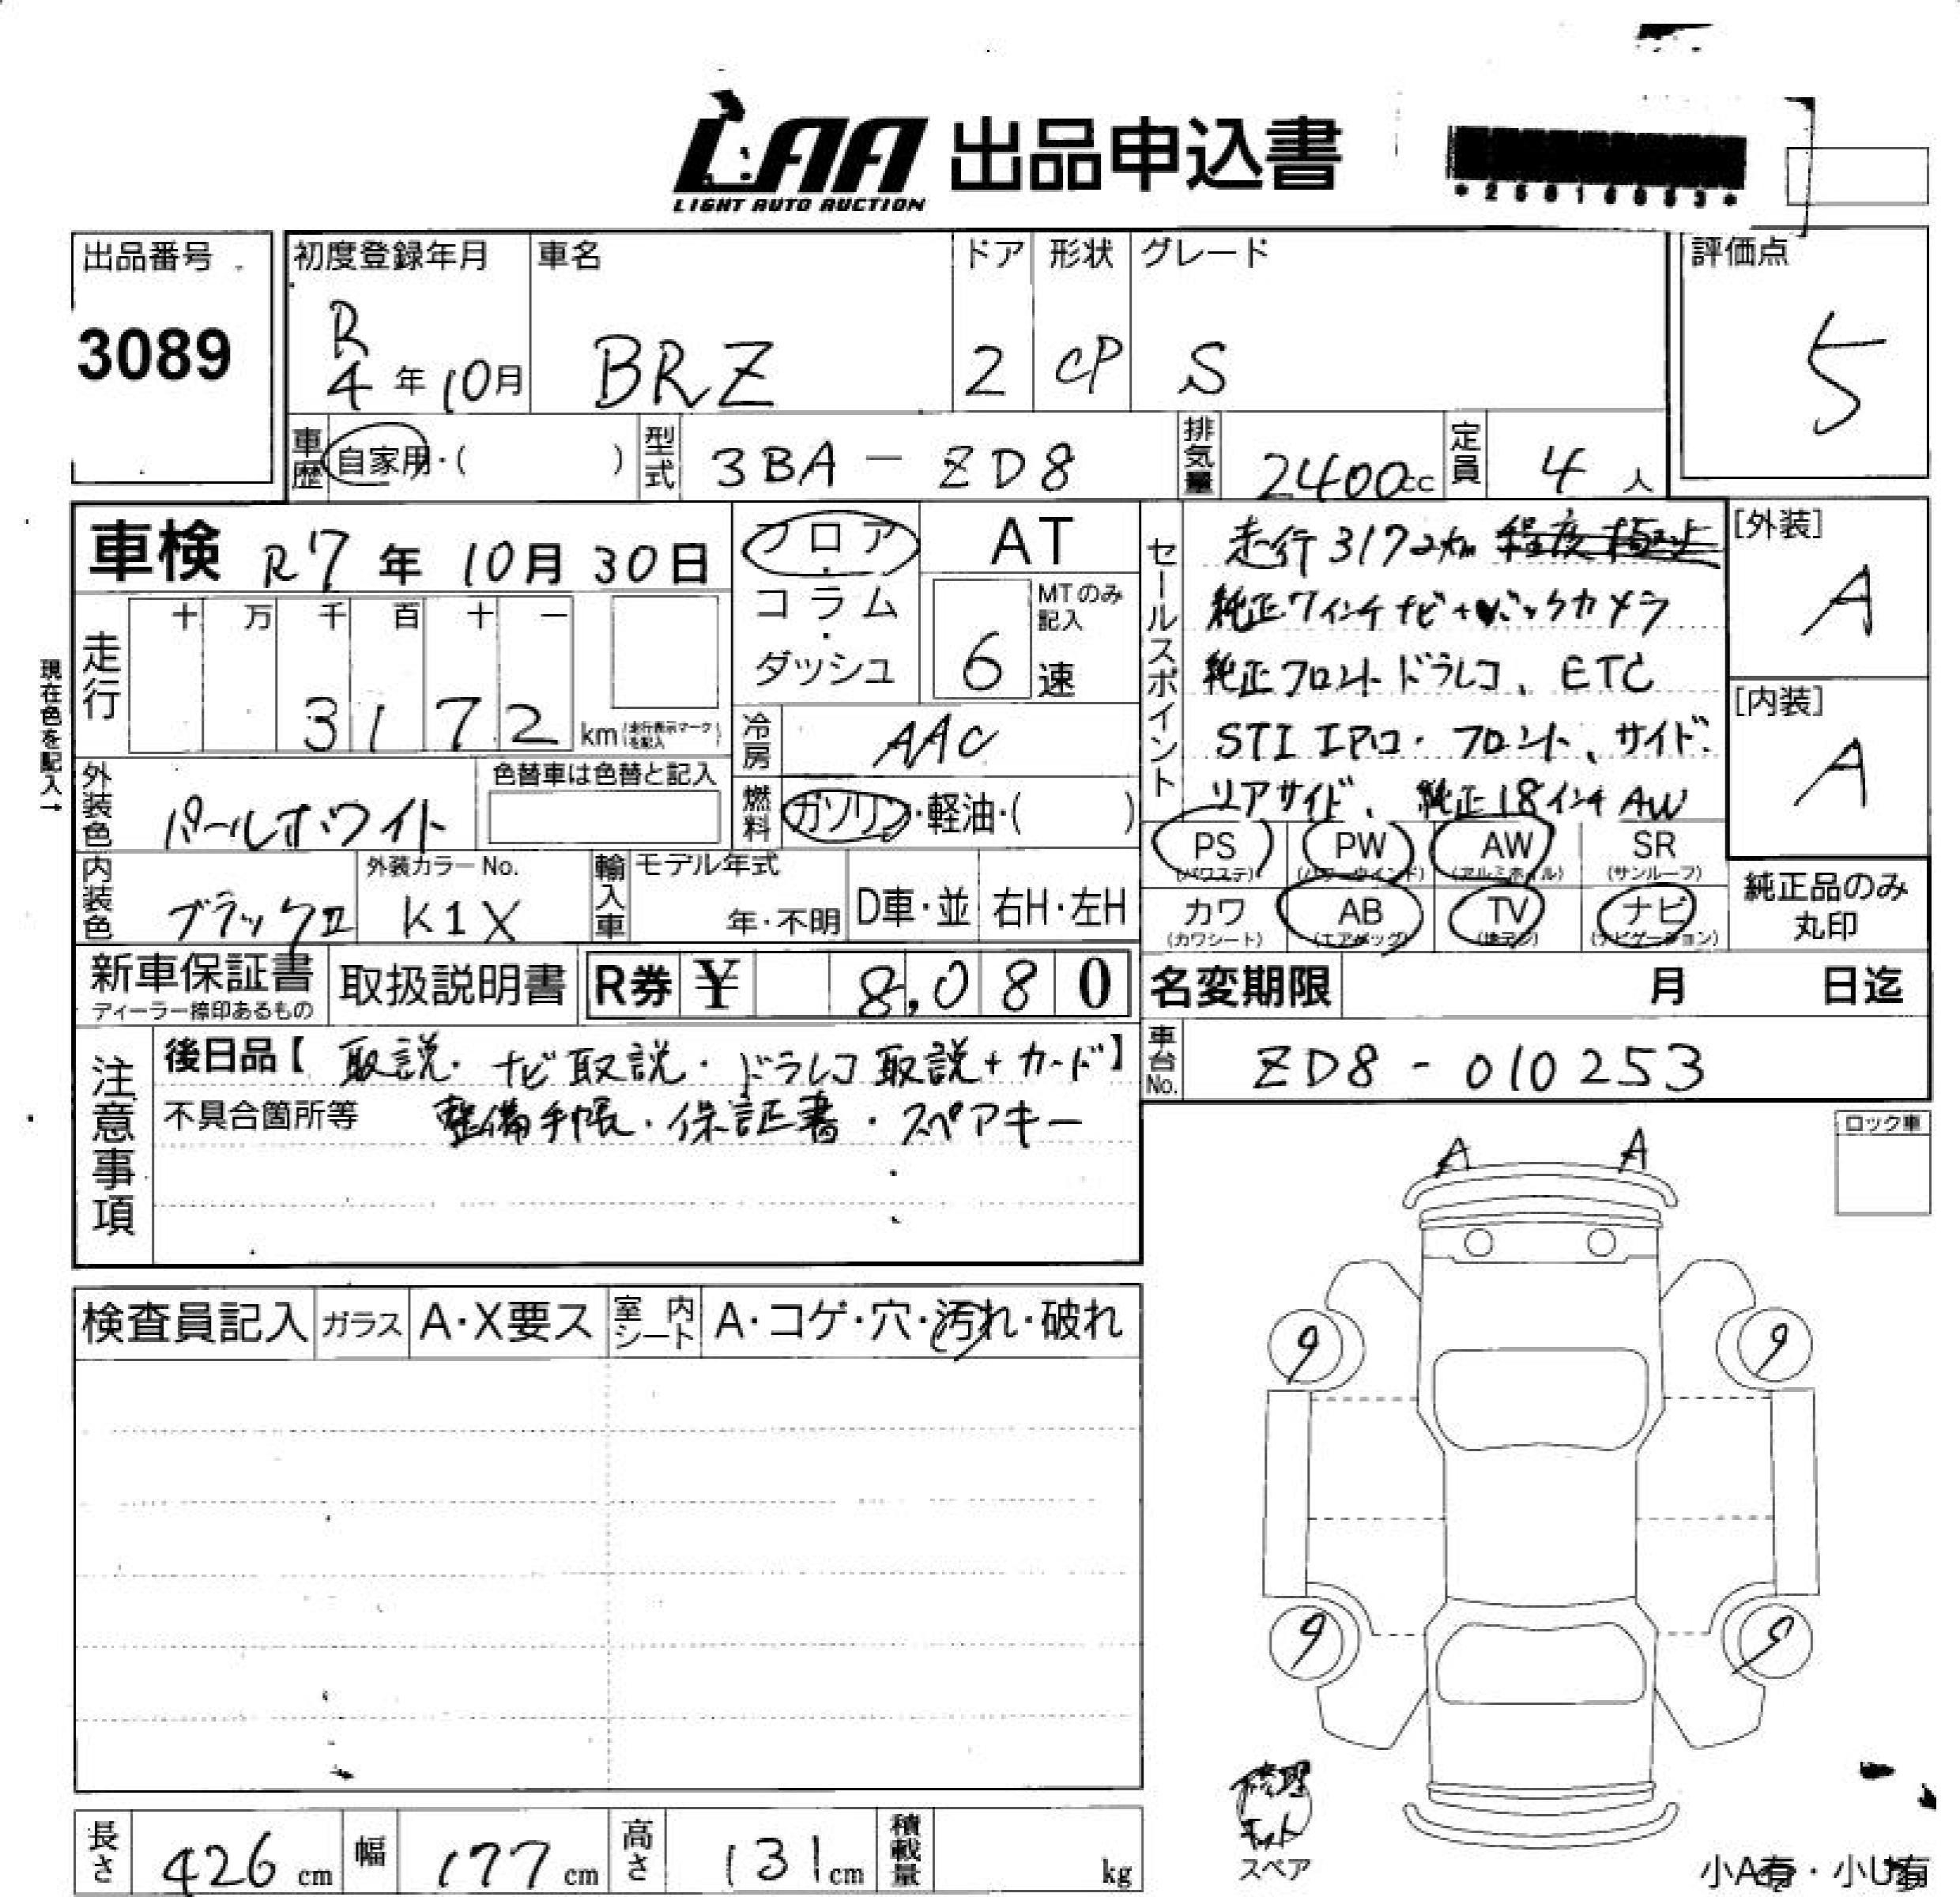 LAA 出品申込書
LIGHT AUTO AUCTION
出品番号
3089
初度登録年月
R
4 年 10月
車名
BRZ
ドア
2
形状
CP
グレード
S
評価点
5
車歴 自家用・( )
型式 3BA - ZD8
排気量 2400cc
定員 4 人
車検 R7年 10月 30日
フロア
・
コラム
・
ダッシュ
AT
MTのみ
記入
6 速
現在色を記入→
走行
十 万 千 百 十 一
3 1 7 2 km (走行表示マークを記入)
冷房 AAC
燃料 ガソリン・軽油・( )
外装色 パールホワイト
色替車は色替と記入
内装色 ブラックⅡ
外装カラーNo.
K1X
輸入車 モデル年式
年・不明
D車・並
右H・左H
セールスポイント
走行3172km 程度極上
純正7インチナビ+バックカメラ
純正フロントドラレコ、ETC
STIエアロ・フロント、サイド、
リアサイド、純正18インチAW
[外装]
A
[内装]
A
PS (パワステ)
PW (パワーウインド)
AW (アルミホイル)
SR (サンルーフ)
カワ (カワシート)
AB (エアバッグ)
TV (地デジ)
ナビ (ナビゲーション)
純正品のみ
丸印
新車保証書
ディーラー捺印あるもの
取扱説明書
R券 ¥ 8,080
名変期限 月 日迄
車台No. ZD8-010253
注意事項
後日品【 取説・ナビ取説・ドラレコ取説+カード】
不具合箇所等 整備手帳・保証書・スペアキー
ロック車
A A
検査員記入
ガラス
A・X要ス
室内シート
A・コゲ・穴・汚れ・破れ
9 9
9 9
修理
キット
スペア
小A有・小U有
長さ 426 cm
幅 177 cm
高さ 131 cm
積載量 kg